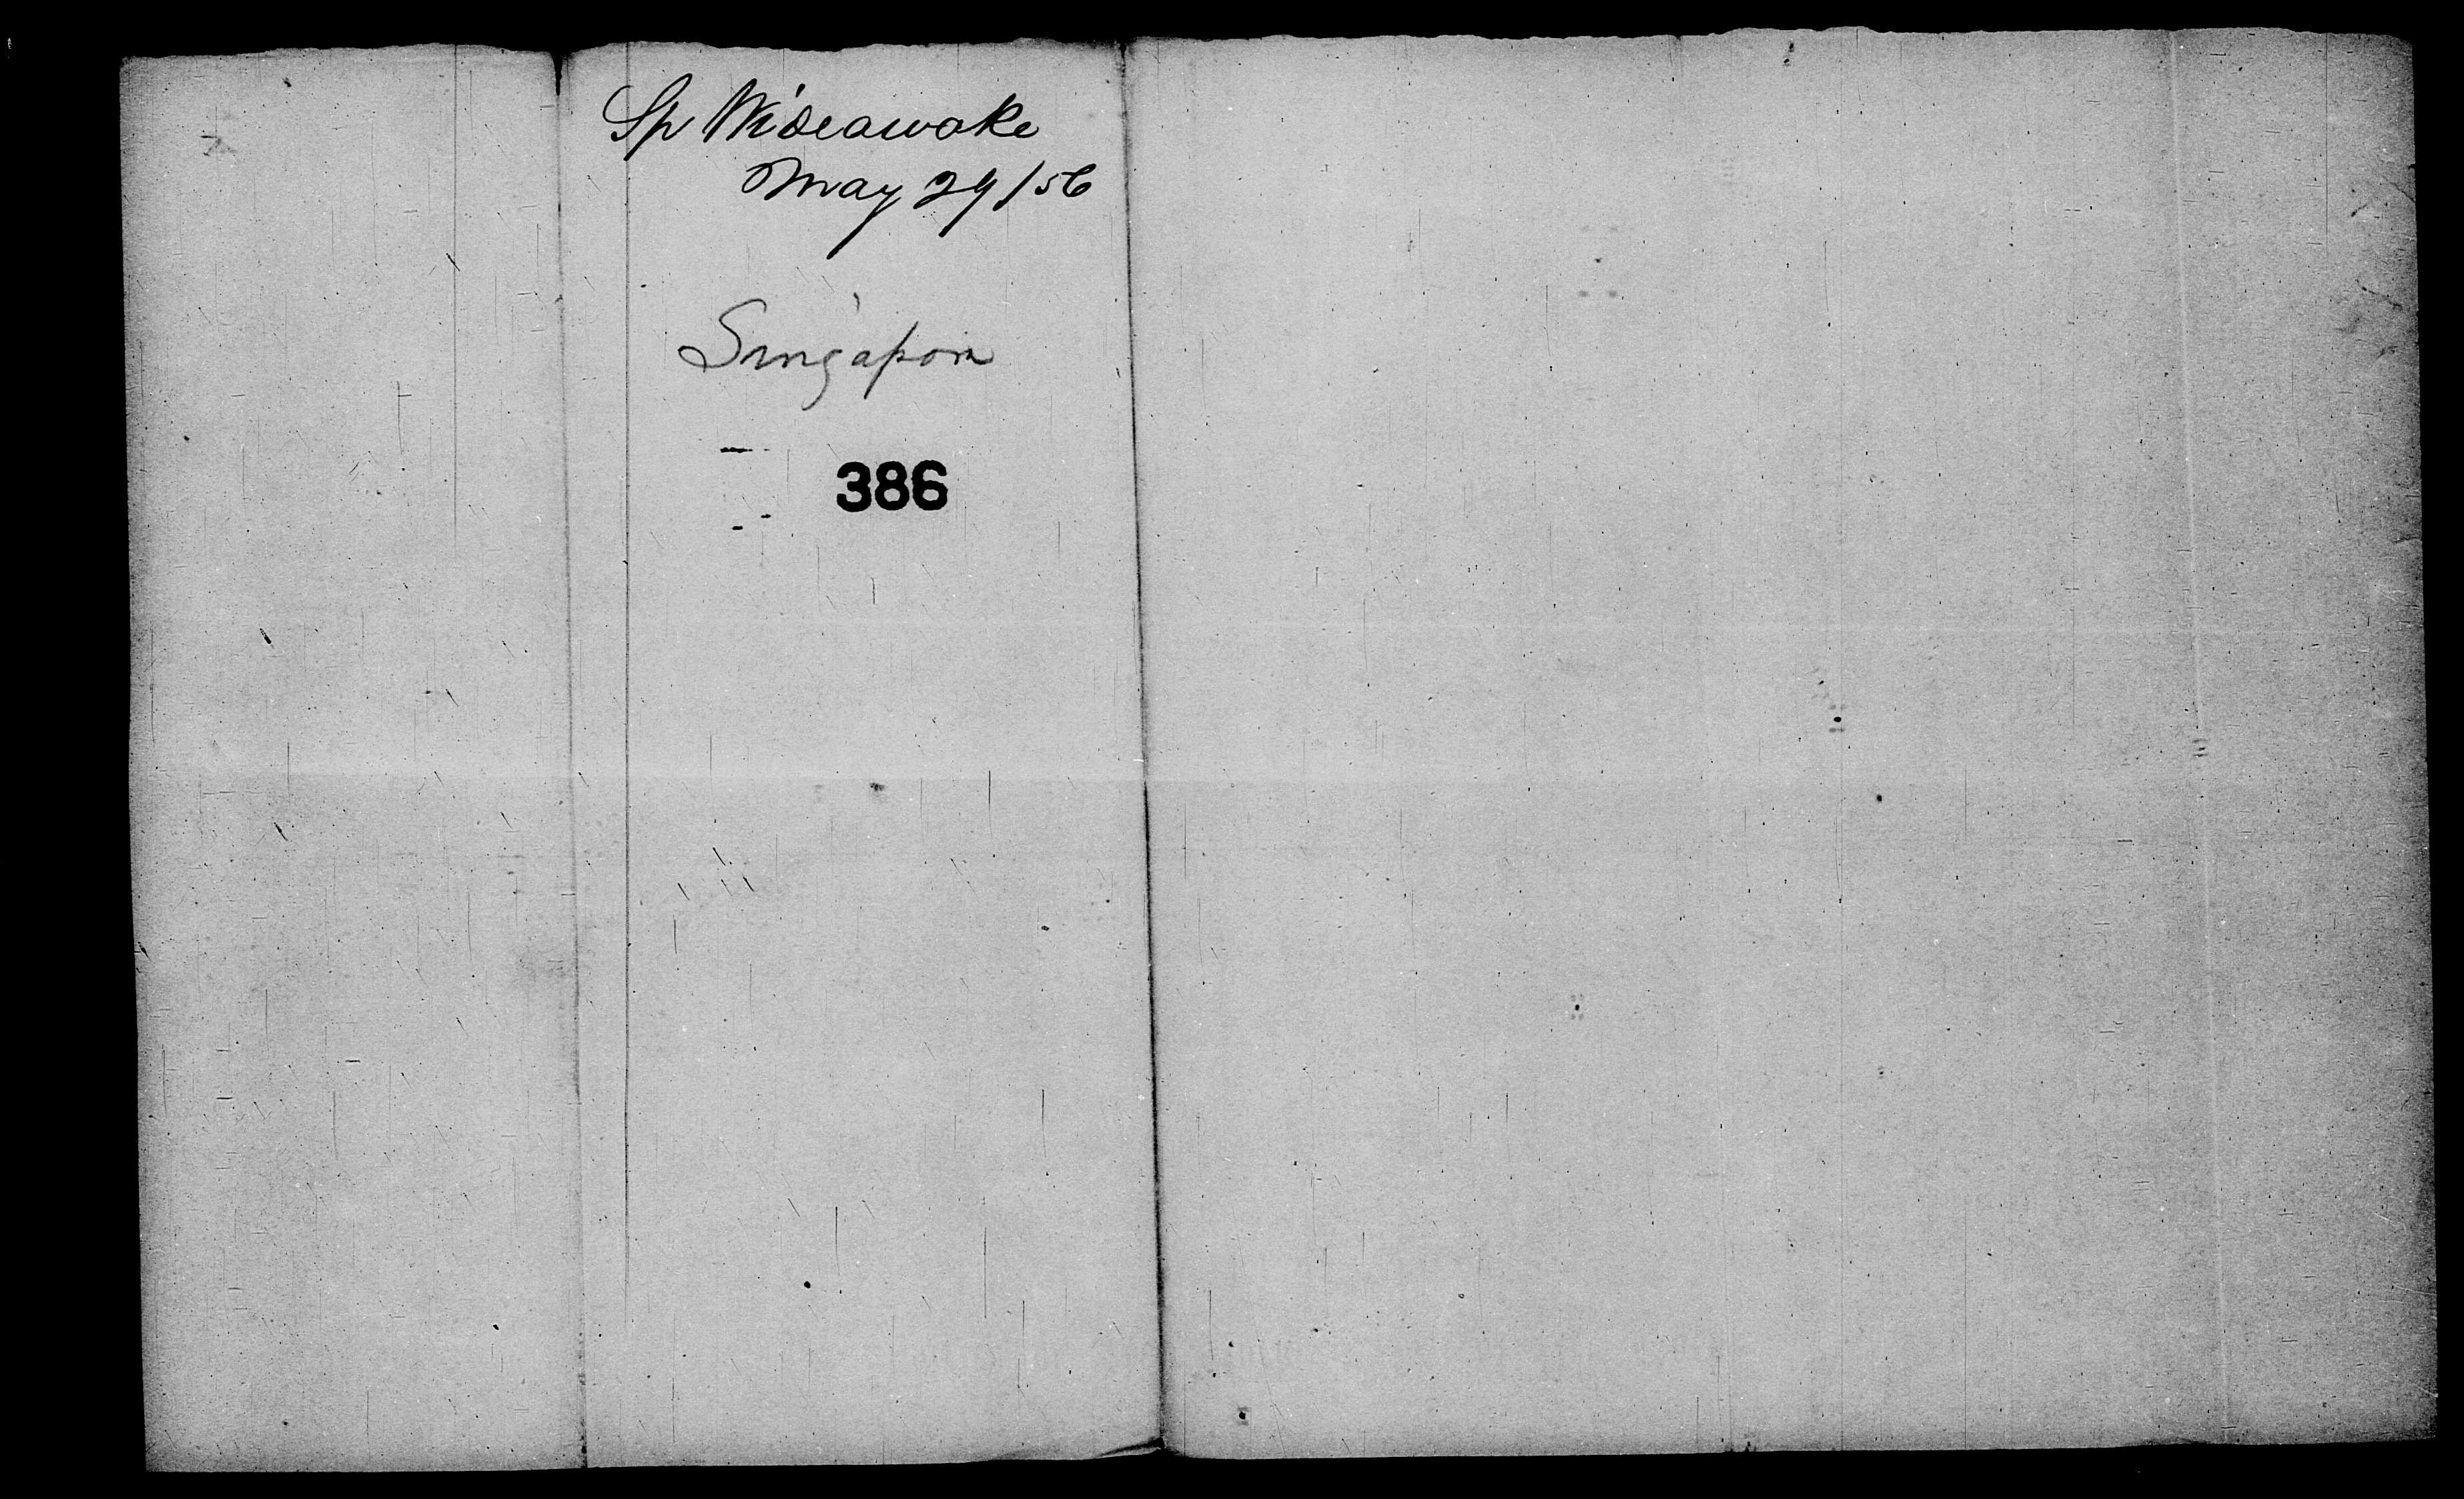 Sp Wideawake
May 29/56
Singapore
386